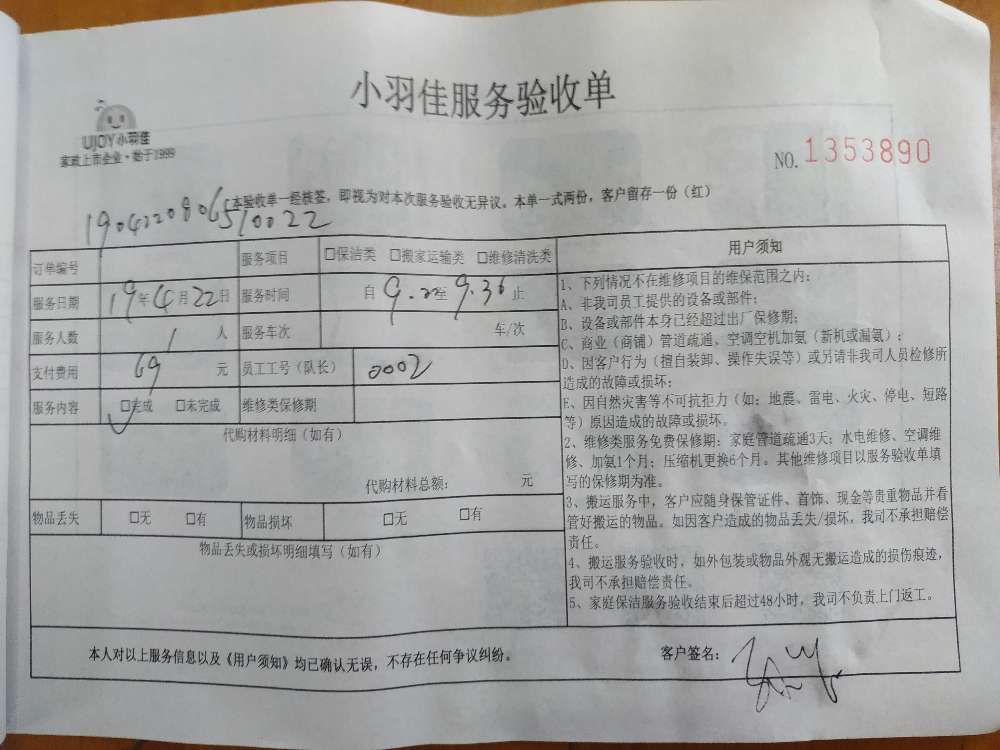 小羽佳服务验收单
UJOY小羽佳
家政上市企业·始于1999
NO. 1353890
本验收单一经核签，即视为对本次服务验收无异议。本单一式两份，客户留存一份（红）
1904220806510022
订单编号 服务项目 □保洁类 □搬家运输类 □维修清洗类
服务日期 19年4月22日 服务时间 自 9.2至9.36止
服务人数 1 人 服务车次 车/次
支付费用 69 元 员工工号（队长） 0002
服务内容 □完成 □未完成 维修类保修期
代购材料明细（如有）
代购材料总额： 元
物品丢失 □无 □有 物品损坏 □无 □有
物品丢失或损坏明细填写（如有）
用户须知
1、下列情况不在维修项目的维保范围之内：
A、非我司员工提供的设备或部件；
B、设备或部件本身已经超过出厂保修期；
C、商业（商铺）管道疏通、空调空机加氨（新机或漏氨）；
D、因客户行为（擅自装卸、操作失误等）或另请非我司人员检修所
造成的故障或损坏；
E、因自然灾害等不可抗拒力（如：地震、雷电、火灾、停电、短路
等）原因造成的故障或损坏。
2、维修类服务免费保修期：家庭管道疏通3天；水电维修、空调维
修、加氨1个月；压缩机更换6个月。其他维修项目以服务验收单填
写的保修期为准。
3、搬运服务中，客户应随身保管证件、首饰、现金等贵重物品并看
管好搬运的物品。如因客户造成的物品丢失/损坏，我司不承担赔偿
责任。
4、搬运服务验收时，如外包装或物品外观无搬运造成的损伤痕迹，
我司不承担赔偿责任。
5、家庭保洁服务验收结束后超过48小时，我司不负责上门返工。
本人对以上服务信息以及《用户须知》均已确认无误，不存在任何争议纠纷。 客户签名：